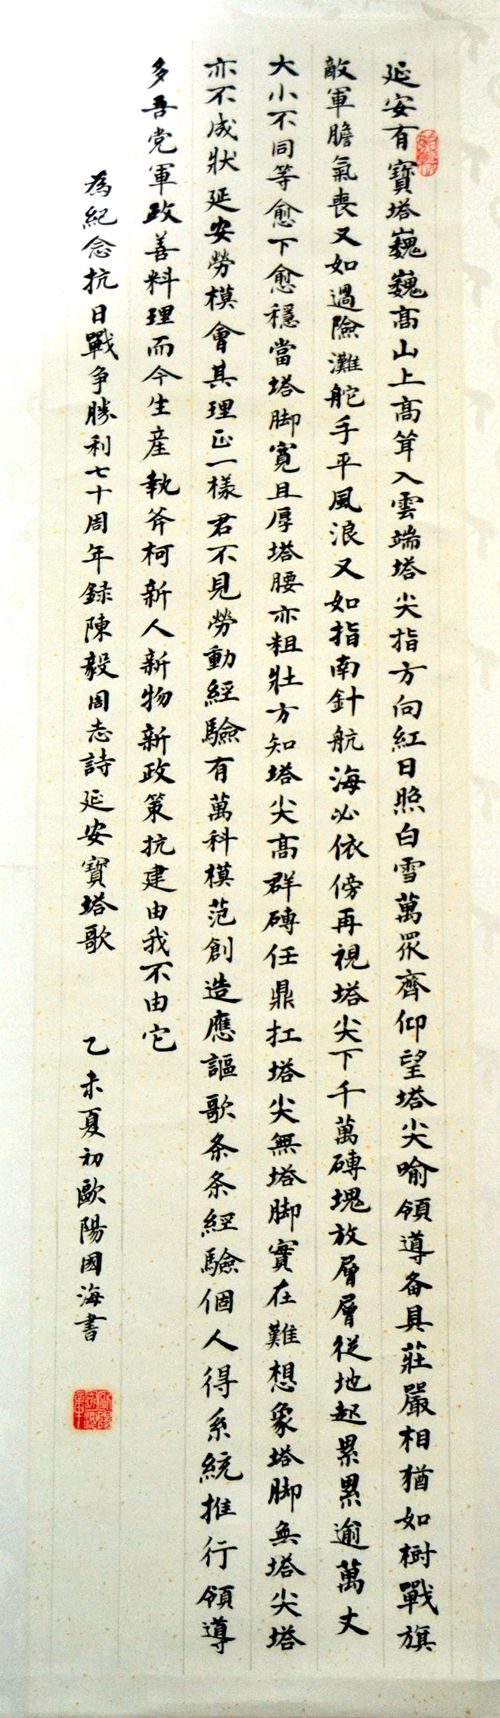 延安有寶塔巍巍高山上高聳入雲端塔尖指方向紅日照白雪萬眾齊仰望塔尖喻領導备具莊嚴相猶如樹戰旗
敵軍膽氣喪又如過險灘舵手平風浪又如指南針航海必依傍再視塔尖下千萬磚塊放層層從地起累累逾萬丈
大小不同等愈下愈穩當塔脚寬且厚塔腰亦粗壯方知塔尖高群磚任鼎扛塔尖無塔脚實在難想象塔脚無塔尖塔
亦不成狀延安勞模會其理正一樣君不見勞動經驗有萬科模范創造應謳歌条条經驗個人得系統推行領導
多吾党軍政善料理而今生産執斧柯新人新物新政策抗建由我不由它
為紀念抗日戰争勝利七十周年録陳毅同志詩延安寶塔歌 乙未夏初歐陽國海書